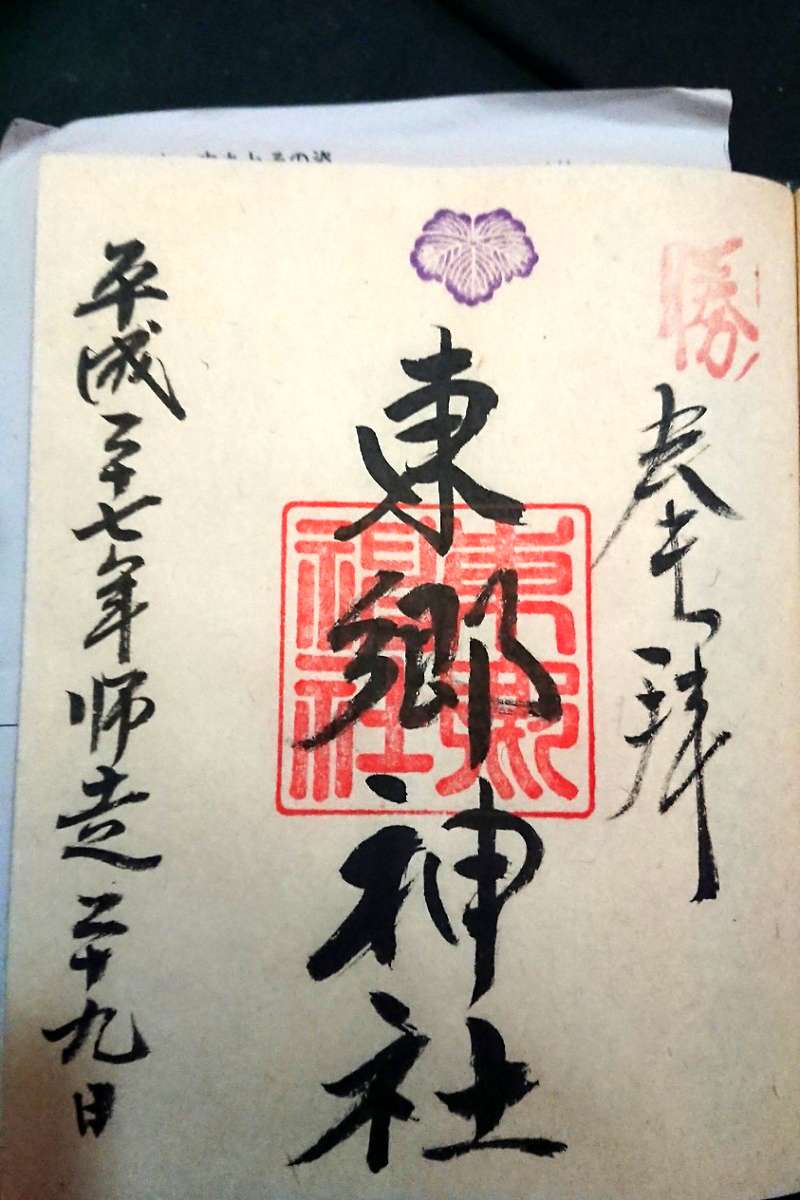 勝
奉拝
東郷神社
東郷神社
平成二十七年師走二十九日